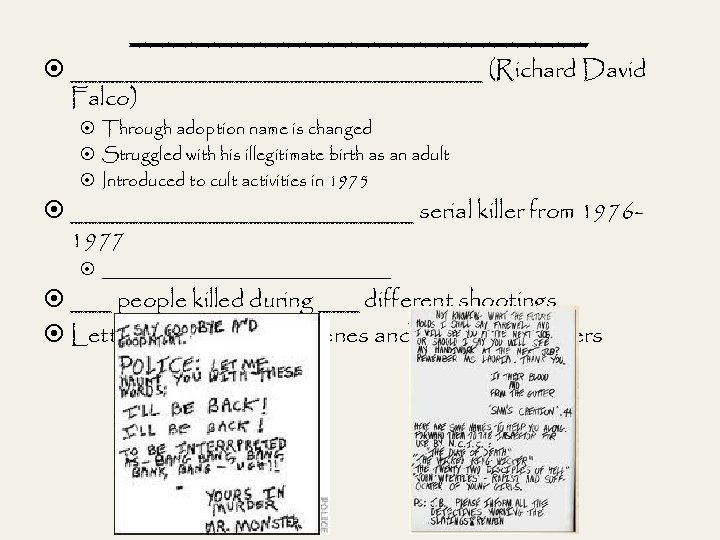 (Richard David
Falco)
Through adoption name is changed
Struggled with his illegitimate birth as an adult
Introduced to cult activities in 1975
serial killer from 1976-
1977
people killed during ____ different shootings
Lett enes and ers
I SAY GOODBYE AND
GOODNIGHT.
POLICE: LET ME
HAUNT YOU WITH THESE
WORDS;
I'LL BE BACK!
I'LL BE BACK!
TO BE INTERRPRETED
AS - BANG BANG, BANG,
BANK, BANG - UGH!!
YOURS IN
MURDER
MR. MONSTER
POLICE
NOT KNOWING WHAT THE FUTURE
HOLDS I SHALL SAY FAREWELL AND
I WILL SEE YOU AT THE NEXT JOB.
OR SHOULD I SAY YOU WILL SEE
MY HANDIWORK AT THE NEXT JOB?
REMEMBER MS. LAURIA. THANK YOU.
IN THEIR BLOOD
AND
FROM THE GUTTER
"SAM'S CREATION" .44
HERE ARE SOME NAMES TO HELP YOU ALONG.
FORWARD THEM TO THE INSPECTOR FOR
USE BY N.C.I.C:
"THE DUKE OF DEATH"
"THE WICKED KING WICKER"
"THE TWENTY TWO DISCIPLES OF HELL"
"JOHN 'WHEATIES' - RAPIST AND SUFF-
OCATER OF YOUNG GIRLS.
PS: J.B. PLEASE INFORM ALL THE
DETECTIVES WORKING THE
SLAYINGS TO REMAIN